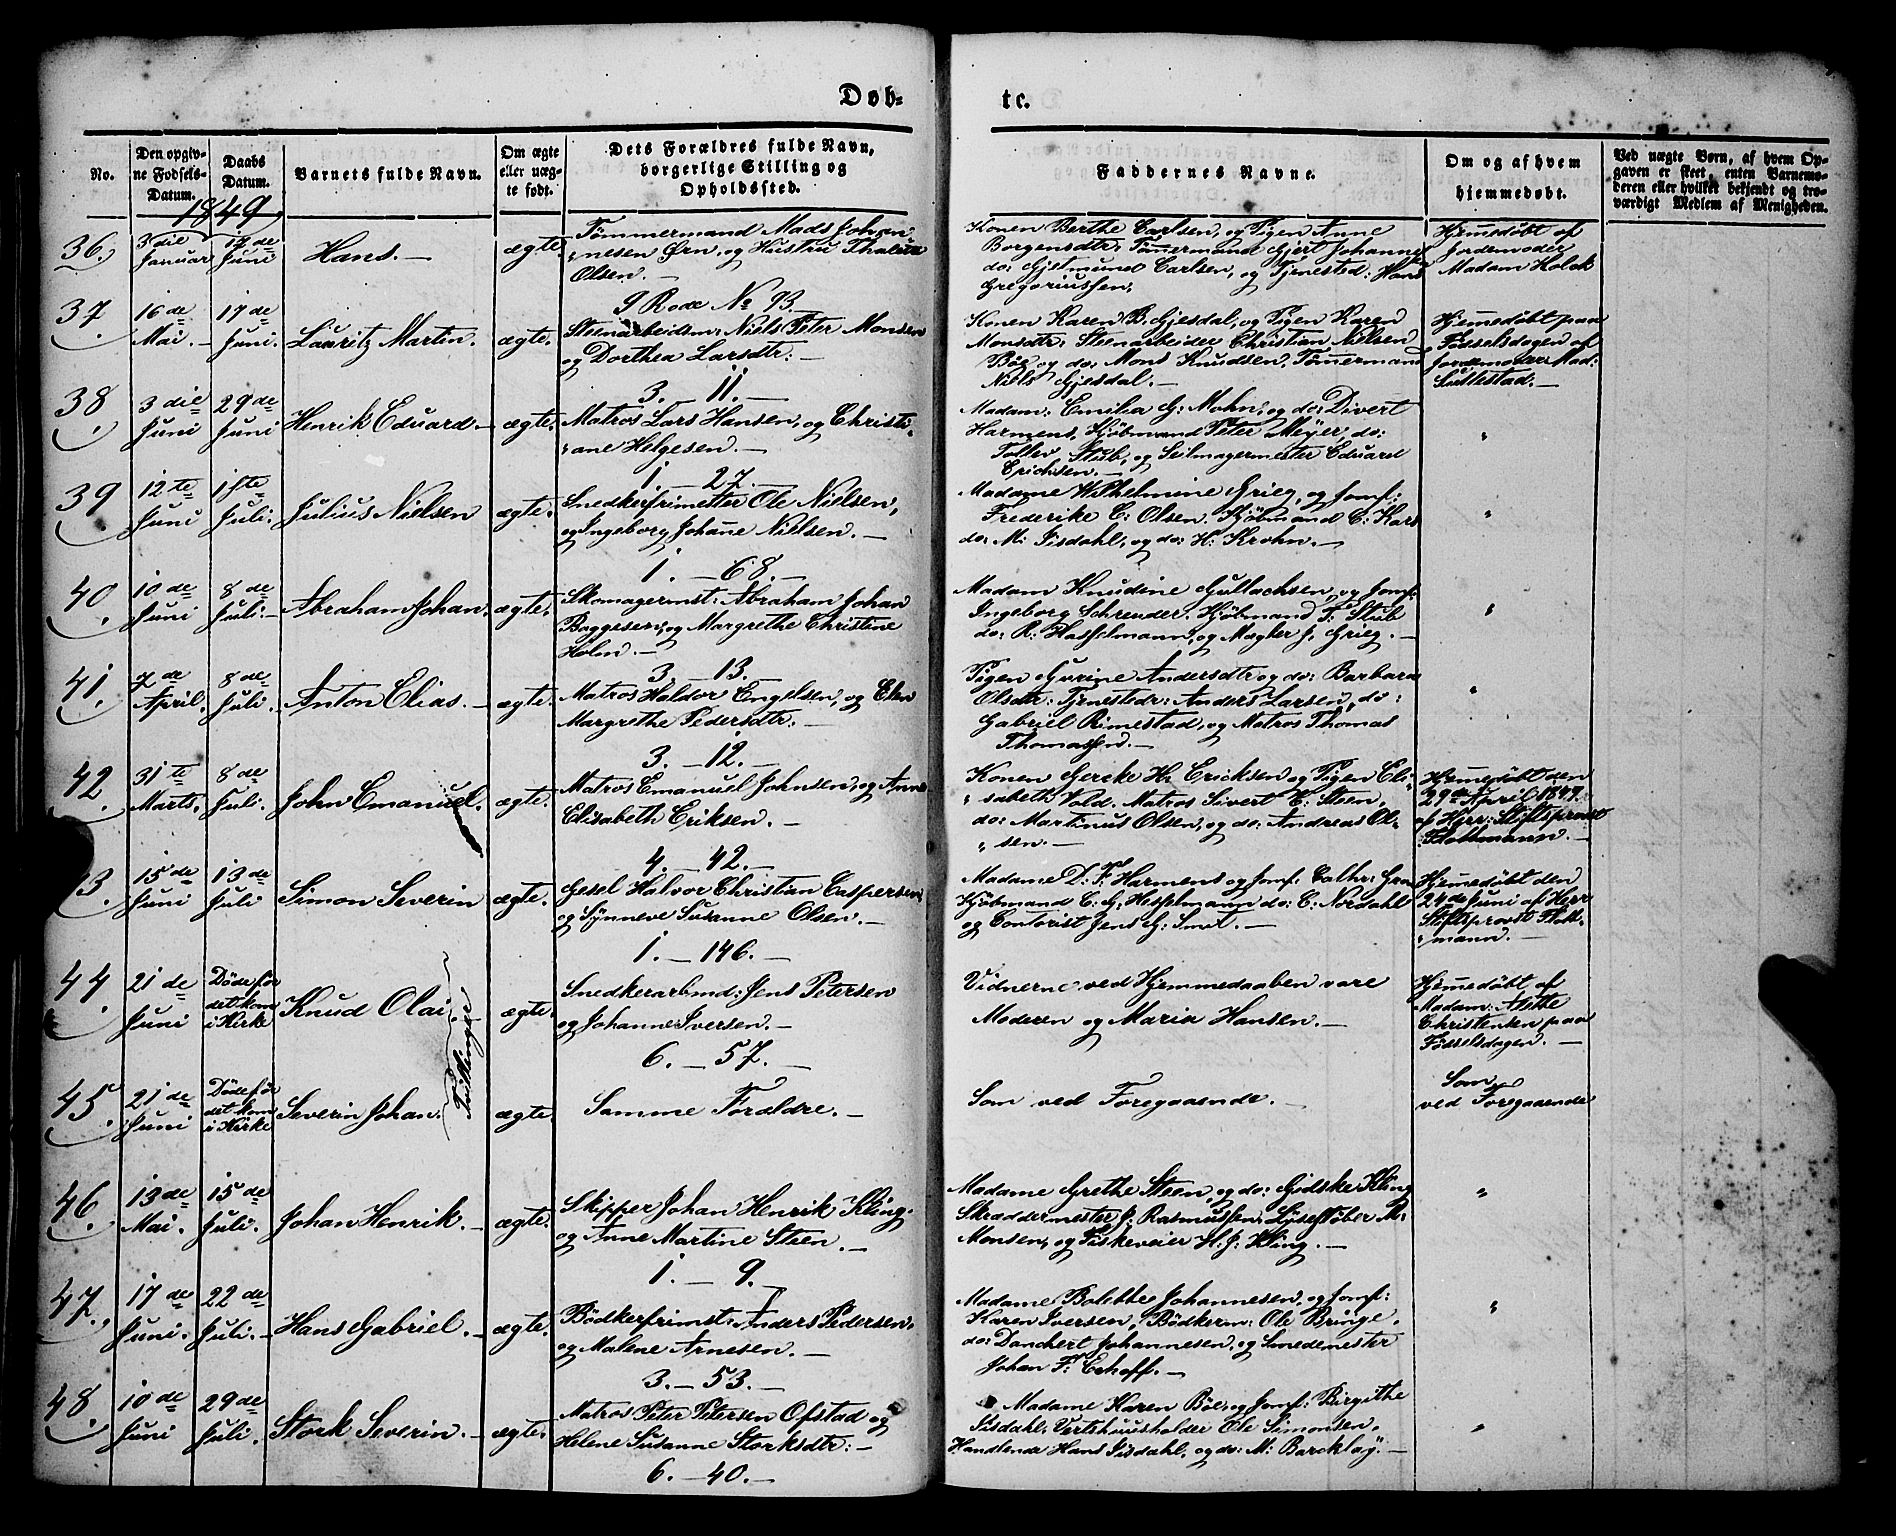 Døb=
te.
No.
Den opgiv-
ne Fødsels-
Datum.
Daabs
Datum.
Barnets fulde Navn.
Om ægte
eller uæg-
te født.
Dets Forældres fulde Navn,
borgerlige Stilling og
Opholdssted.
Faddernes Navne.
Om og af hvem
hjemmedøbt.
Ved uægte Børn, af hvem Op-
gaven er skeet, enten Barnemo-
deren eller hvilket bekjendt og tro-
værdigt Medlem af Menigheden.
1849.
36.
3die
Januar
17de
Juni
Hans. —
ægte.
Tømmermand Mads Johan
nesen Ørn, og Hustru Thalette
Olsen. —
9 Rode No 93
Konen Berthe Carlsen, og Pigen Anne
Borgensdtr: Tømmermand Gjert Johannes
do: Gjetmund Carlsen, og Tjenested: Hans
Gregoriussen.
Hjemedøbt af
Jordemoder
Madam Holck
37.
16de
Mai. —
17de
Juni.
Lauritz Martin.
ægte.
Steenarbeider: Niels Peter Monsen
og Dorthea Larsdtr: —
3. — 11. —
Konen Karen B. Gjesdal, og Pigen Karen
Monsdtr: Steenarbeider Christian Nielsen
Bøe og do: Mons Knudsen, Tømermand
Niels Gjesdal. —
Hjemedøbt paa
Fødselsdagen af
Jordemoder Mad:
Sullestad. —
38.
3die
Juni
29de
Juni
Henrik Eduard. —
ægte.
Matros Lars Hansen, og Christi-
ane Helgesen. —
1. — 27. —
Madam: Emilia G: Mohn, og do: Divert
Harmens, Kjøbmand Peter Meyer, do:
Toller Stub, og Seilmagermester Eduard
Erichsen. —
"
39
12te
Juni
1ste
Juli.
Julius Nielsen
ægte.
Snedkerfrimester Ole Nielsen,
og Ingeborg Johane Nielsen. —
1. — 68. —
Madame Wilhelmine Grieg, og Jomf:
Frederike C: Olsen. Kjøbmand C: Kars
do: M: Sisdahl, og do: H: Krohn. —
"
40.
10de
Juni
8de
Juli. —
Abraham Johan.
ægte.
Skomagermst: Abraham Johan
Baggesen, og Margrethe Christine
Holm. —
3. — 13. —
Madam Knudine Gullachsen, og Jomf:
Ingeborg Schreuder. Kjøbmand F: Stub
do: R: Hasselmann, og Mægler J. Grieg. —
"
41.
7de
April.
8de
Juli. —
Anton Elias. —
ægte.
Matros Haldor Engelsen, og Elen
Margrethe Pedersdtr: —
3. — 12. —
Pigen Gurine Andersdtr og do: Barbara
Olsdtr: Tjenestedr: Anders Larsen, do:
Gabriel Rimestad, og Matros Thomas
Thomassen. —
"
42.
31te
Marts.
8de
Juli.
John Emanuel.
ægte.
Matros Emanuel Johnsen, og Anne
Elisabeth Eriksen. —
4. — 42. —
Konen Gercke H: Ericksen og Pigen Eli-
sabeth Vold. Matros Sivert E: Steen,
do: Martinus Olsen, og do: Andreas Ol-
sen. —
Hjemedøbt den
29de April 1849.
af Hjrr: Stiftsprovst
Flottmann. —
43.
15de
Juni
13de
Juli
Simon Severin
ægte.
Gesel Halvor Christian Caspersen,
og Synneve Susanne Olsen. —
1. — 146. —
Madame D: F: Harmens og Jomf: Cathr: Gran
Kjøbmand C: G: Hesselmann do: C: Nordahl
og Contorist Jens G: Smit. —
Hjemedøbt den
24de Juni af Herr
Stiftsprovst Flott-
mann. —
44.
21de
Juni
Døde før
det kom
i Kirke
Knud Olai.
Tvillinger
ægte.
Snedkerarbmd: Jens Petersen
og Johanne Iversen. —
6. — 57. —
Vidnerne ved Hjemmedaaben vare
Moderen og Maria Hansen. —
Hjemedøbt af
Madam: Alethe
Christensen paa
Fødselsdagen. —
45.
21de
Juni
Døde før
det kom
i Kirke
Severin Johan.
ægte.
Samme Forældre. —
Som ved Foregaaende. —
Som
ved Foregaaende
46.
13de
Mai.
15de
Juli.
Johan Henrik. —
ægte.
Skipper Johan Henrik Kling,
og Anne Martine Steen. —
1. — 9. —
Madame Grethe Steen, og do: Gidske Kling
Skræddermester J. Rasmussen, Lysestøber M:
Monsen, og Fiskeveier H. J: Kling. —
"
47.
17de
Juni.
22de
Juli. —
Hans Gabriel. —
ægte.
Bødkerfrimst: Anders Pedersen,
og Malene Arnesen. —
3. — 53. —
Madame Bolethe Johannesen, og Jomf:
Karen Iversen, Bødkerm: Ole Bringe,
do: Danchert Johannesen, og Smedemester
Johan F: Echoff. —
"
48.
10de
Juni
29de
Juli.
Stork Severin. —
ægte.
Matros Peter Petersen Ofstad og
Helene Susanne Storksdtr: —
6. — 40. —
Madame Karen Bøe, og Jomf: Birgithe
Sisdahl, Vertshuusholder Ole Simonsen,
Handlende Hans Sisdahl, og do: M: Barcklay: —
"